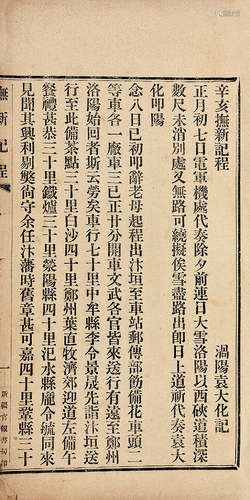 辛亥撫新記程
渦陽袁大化記
正月初七日電軍機處代奏除夕前連日大雪洛陽以西硤道積深
數尺未消別處又無路可繞擬俟雪盡路出卽日上道祈代奏袁大
化叩陽
念八日已初叩辭老母起程出汴垣至車站郵傳部飭備花車頭二
等車各一廠車三已正廿分開車文武各官皆來送行有遠至鄭州
洛陽始回者斯云勞矣車行七十里中牟縣李令景晟先詣汴垣送
行至此備茶點三十里白沙四十里鄭州葉直牧濟郊迎道左備午
餐禮甚恭三十里鐵爐三十里滎陽縣四十里汜水縣龐令毓同來
見聞其興利剔弊尙守余任汴藩時舊章甚可嘉四十里鞏縣三十
撫新記程
新疆官報書局印